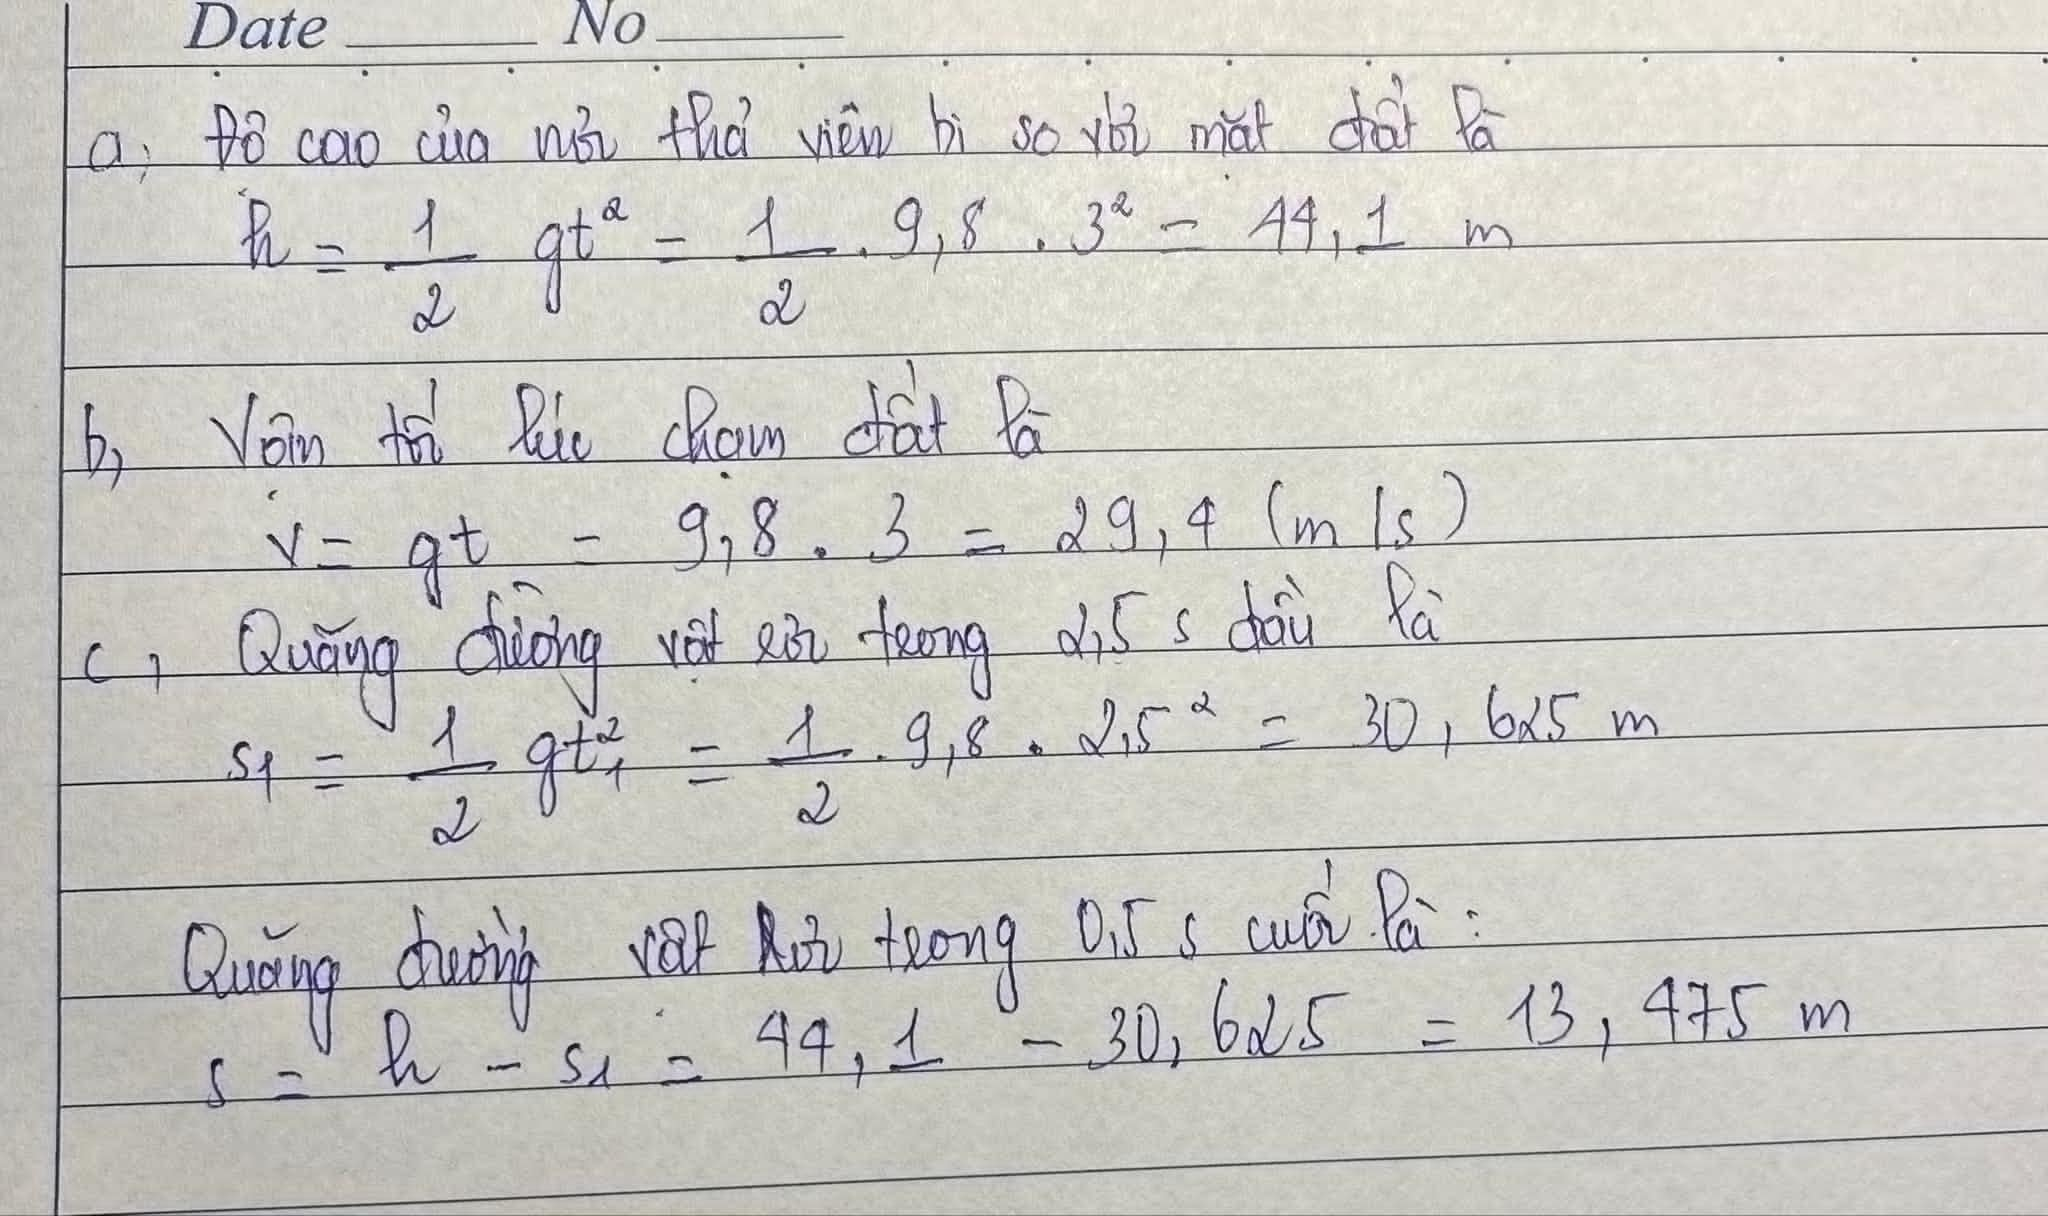 Date No
a, Độ cao của nơi thả viên bi so với mặt đất là
h = 1/2 gt² = 1/2 . 9,8 . 3² = 44,1 m
b, Vận tốc lúc chạm đất là
v = gt = 9,8 . 3 = 29,4 (m/s)
c, Quãng đường vật rơi trong 2,5 s đầu là
s₁ = 1/2 gt₁² = 1/2 . 9,8 . 2,5² = 30,625 m
Quãng đường vật rơi trong 0,5 s cuối là :
s = h - s₁ = 44,1 - 30,625 = 13,475 m